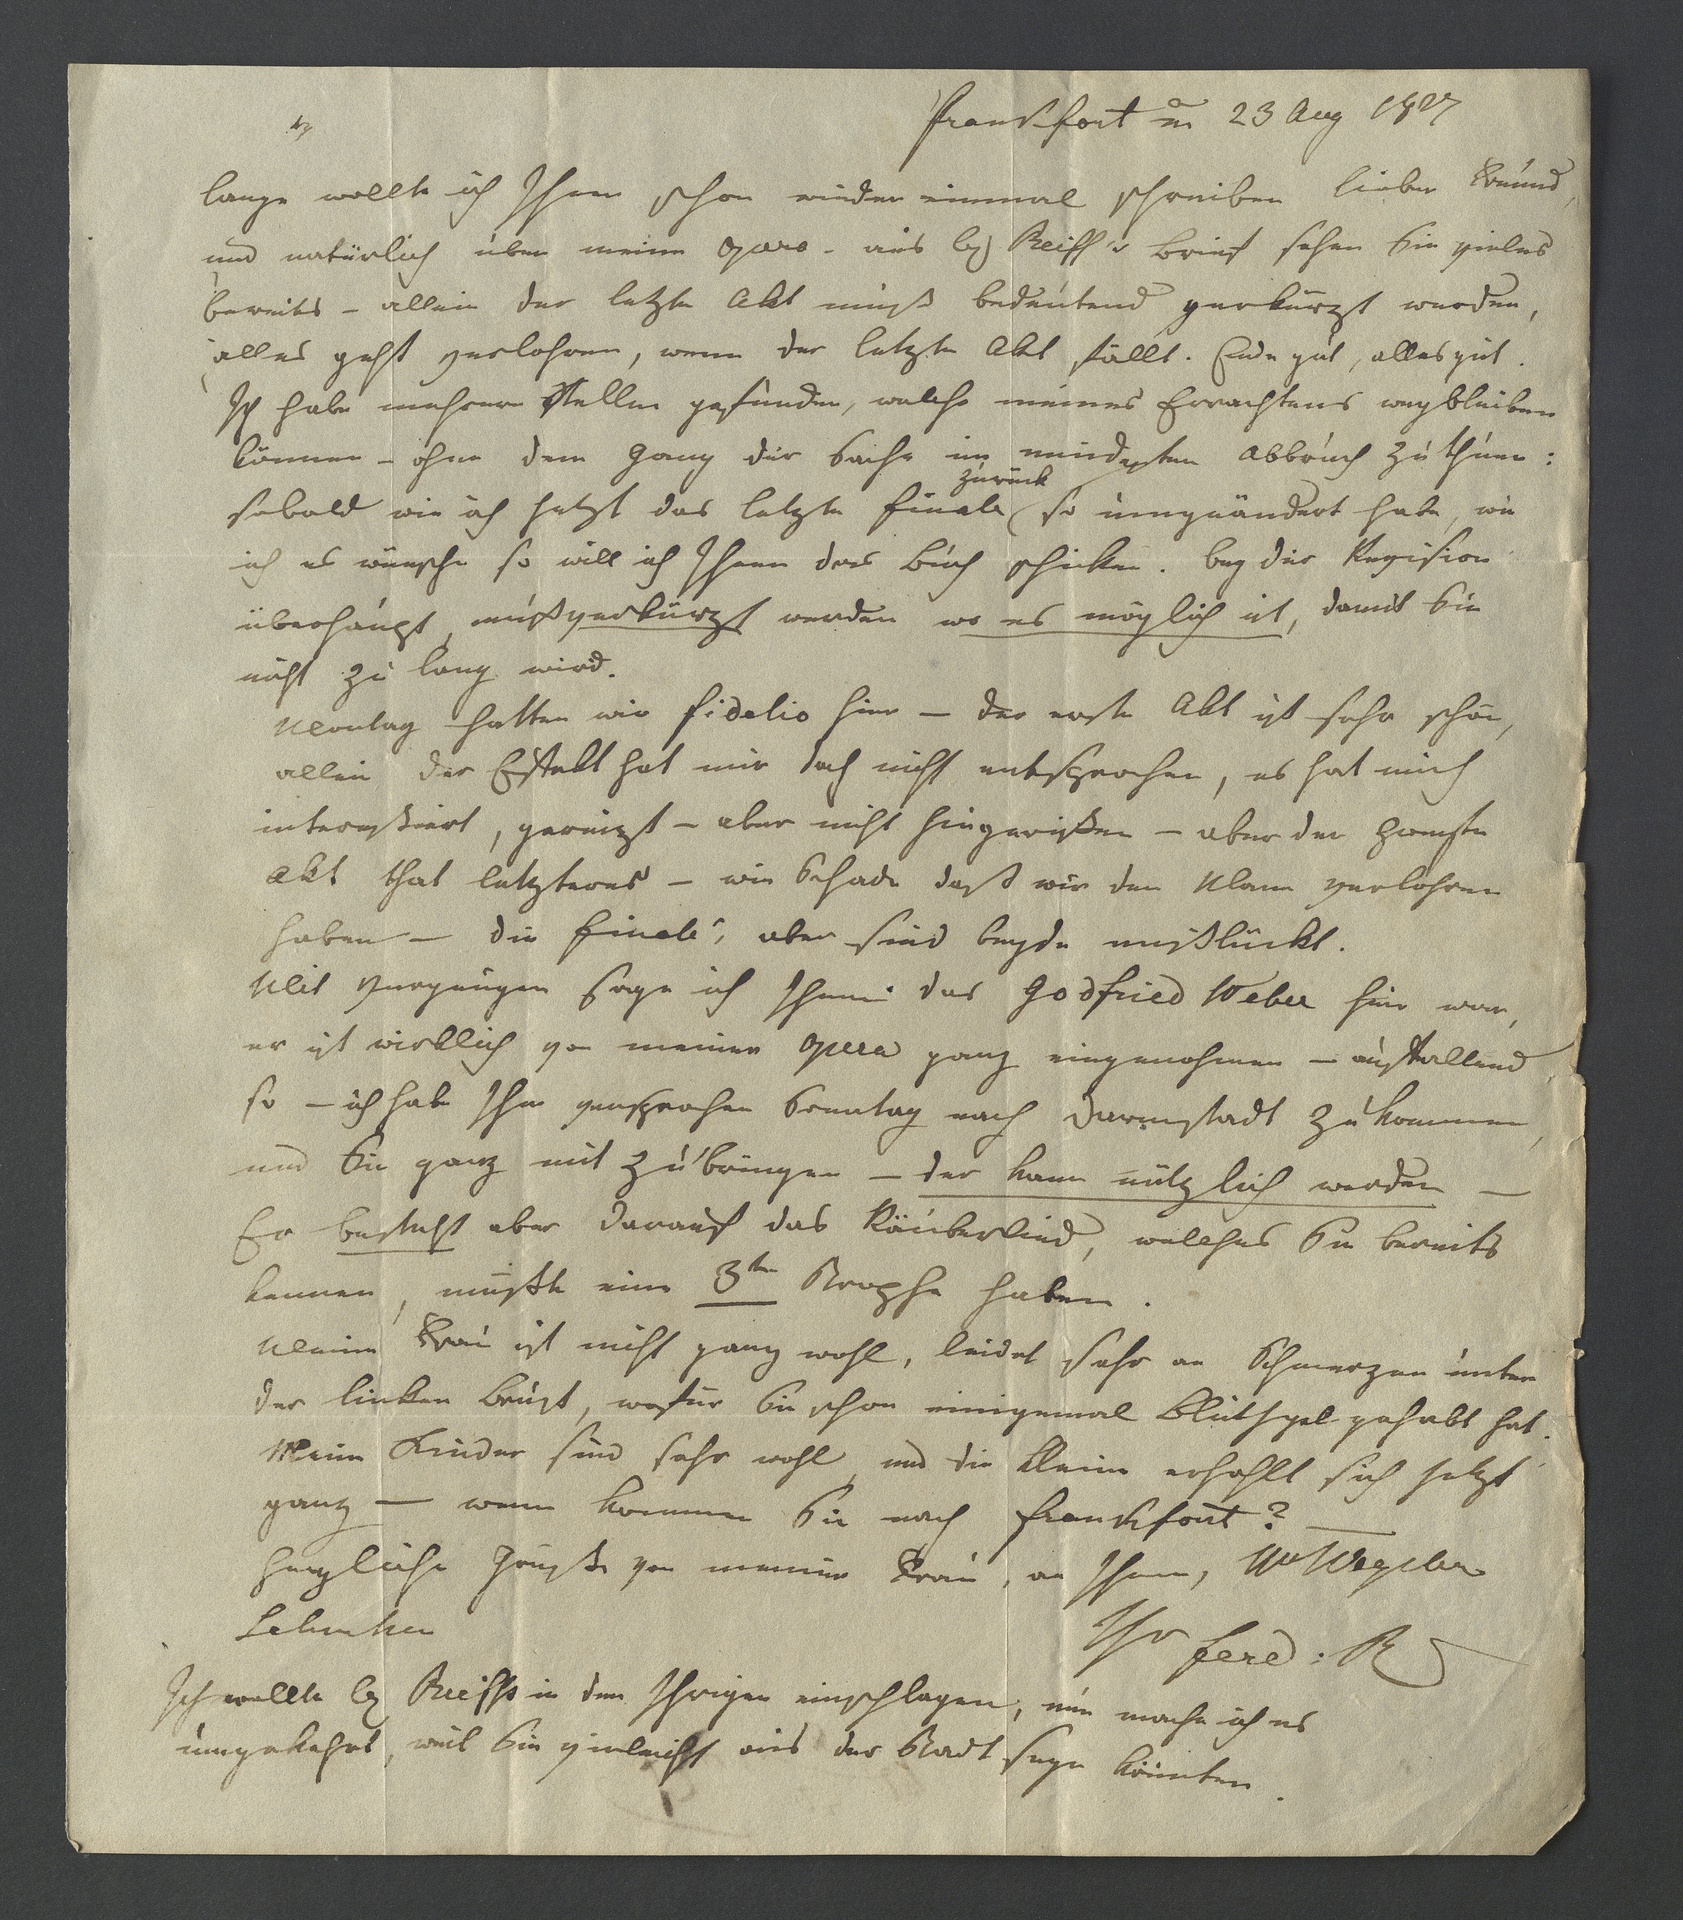 Frankfort a/m 23 Aug 1827
lange wollte ich Ihnen schon wieder einmal schreiben lieber Freund,
und natürlich über meine Opera - aus bej Reiff's Brief sehen Sie vieles
bereits - allein der letzte Akt muß bedeutend verkürzt werden,
alles geht verlohren, wenn der letzte Akt fällt. Ende gut, alles gut.
Ich habe mehrere Stellen gefunden, welche meines Erachtens wegbleiben
können - ohne dem Gang der Sache im mindesten Abbruch zu thuen:
zurück
sobald wie ich jetzt das letzte Finale so umgeändert habe, wie
ich es wünsche so will ich Ihnen das Buch schicken. bey der Revision
überhaupt, muß verkürzt werden wo es möglich ist, damit Sie
nicht zu lang wird.
Montag hatten wir Fidelio hier — der erste Akt ist sehr schön,
allein der Effekt hat mir doch nicht entsprochen, es hat mich
interessiert, gereizt - aber nicht hingerißen - aber der zweyte
Akt that letzteres - wie Schade daß wir den Mann verlohren
haben — die Finale's aber sind beyde mißlückt.
Mit Vergnügen sage ich Ihnen das Godfried Weber hier war,
er ist wirklich von meiner Opera ganz eingenohmen - auffallend
so - ich habe Ihm versprochen Sonntag nach Darmstadt zu kommen,
und Sie ganz mit zu bringen - der kann nützlich werden —
Er besteht aber darauf das Räuberlied, welches Sie bereits
kennen, müßte eine 3te Strophe haben.
Meine Frau ist nicht ganz wohl, leidet sehr an Schmerzen unter
der linken Brust, wofür Sie schon einigemal Bluthigel gehabt hat.
Meine Kinder sind sehr wohl und die Kleine erhohlt sich jetzt
ganz — wenn kommen Sie nach Frankfort? —
herzliche Grüße von meiner Frau, an Ihnen, Wegeler
Ihr Ferd: R
Ich wollte bej Reiffs in den Ihrigen einschlagen, nun mache ich es
umgekehrt, weil Sie vieleicht aus der Stadt seyn könnten.